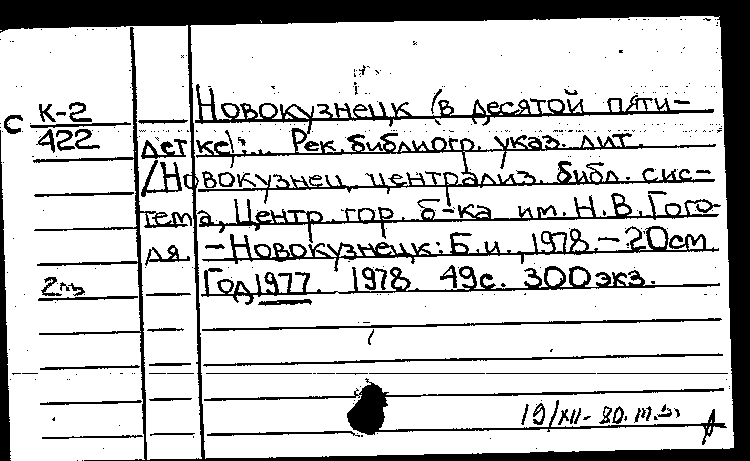 К-2
с 422
Новокузнецк (в десятой пяти-
детке):... Рек. библиогр. указ. лит.
/Новокузнец. централиз. библ. сис-
тема, Центр. гор. б-ка им. Н.В.Гого-
ля. -Новокузнецк: Б.и., 1978.-20см.
2
Год 1977. 1978. 49с. 300 экз.
19/XII-80.